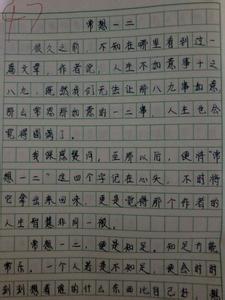 47
常想一二
很久之前，不知在哪里看到过一
篇文章，作者说，人生不如意事十之
八九，既然我们无法让那八九事如意
那么常思那如意的一二事，人生也会
觉得圆满了。
我深感赞同，至那以后，便将“常
想一二”这四个字记在心头，不时将
它拿出来回味，更是觉得那个作者的
人生智慧非同一般。
常想一二，便是知足，知足方能
常乐。一个人若是不知足，便会时时
刻刻想着